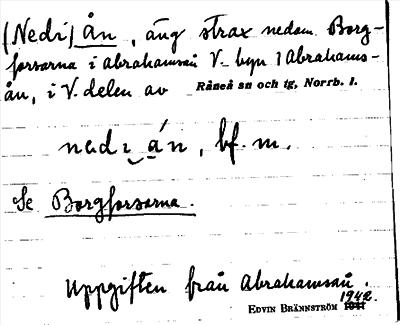 (Nedi) ån, äng strax nedom Borg-
forsarna i Abrahamsån V. byn i Abrahams-
ån, i V. delen av Råneå sn och tg, Norrb. l.
nedi ån, bf. m.
Se Borgforsarna.
Uppgiften från Abrahamsån.
1942
EDVIN BRÄNNSTRÖM 1941